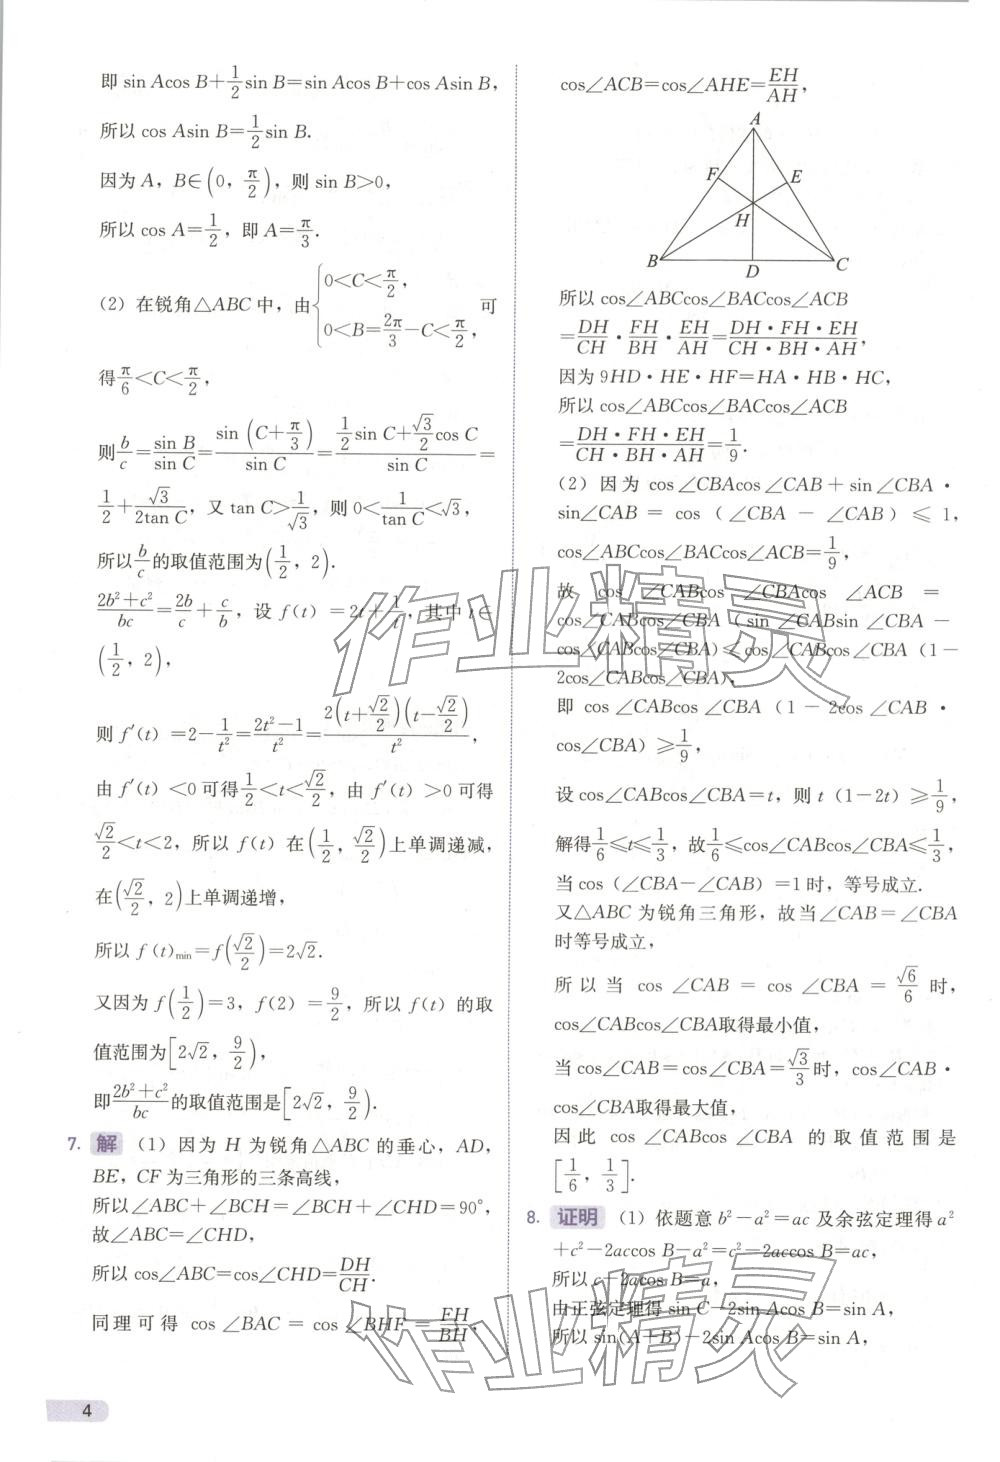 即 sin Acos B+1/2 sin B=sin Acos B+cos Asin B,
所以 cos Asin B=1/2 sin B.
因为 A, B∈(0, π/2), 则 sin B>0,
所以 cos A=1/2, 即 A=π/3.
(2) 在锐角△ABC 中, 由{0<C<π/2, 0<B=2π/3-C<π/2, 可
得 π/6<C<π/2,
则 b/c=sin B/sin C=sin(C+π/3)/sin C=(1/2 sin C+√3/2 cos C)/sin C=
1/2+√3/(2tan C), 又 tan C>1/√3, 则 0<1/tan C<√3,
所以 b/c 的取值范围为(1/2, 2).
(2b²+c²)/bc=2b/c+c/b, 设 f(t)=2t+1/t, 其中 t∈
(1/2, 2),
则 f′(t)=2-1/t²=(2t²-1)/t²=2(t+√2/2)(t-√2/2)/t²,
由 f′(t)<0 可得 1/2<t<√2/2, 由 f′(t)>0 可得
√2/2<t<2, 所以 f(t) 在(1/2, √2/2)上单调递减,
在(√2/2, 2)上单调递增,
所以 f(t)min=f(√2/2)=2√2.
又因为 f(1/2)=3, f(2)=9/2, 所以 f(t) 的取
值范围为[2√2, 9/2),
即 (2b²+c²)/bc 的取值范围是[2√2, 9/2).
7. 解 (1) 因为 H 为锐角△ABC 的垂心, AD,
BE, CF 为三角形的三条高线,
所以∠ABC+∠BCH=∠BCH+∠CHD=90°,
故∠ABC=∠CHD,
所以 cos∠ABC=cos∠CHD=DH/CH.
同理可得 cos ∠BAC = cos ∠BHF = FH/BH,
4
cos∠ACB=cos∠AHE=EH/AH,
A
F E
H
B D C
所以 cos∠ABCcos∠BACcos∠ACB
=DH/CH·FH/BH·EH/AH=DH·FH·EH/CH·BH·AH,
因为 9HD·HE·HF=HA·HB·HC,
所以 cos∠ABCcos∠BACcos∠ACB
=DH·FH·EH/CH·BH·AH=1/9.
(2) 因为 cos∠CBAcos∠CAB+sin∠CBA·
sin∠CAB = cos (∠CBA - ∠CAB) ≤ 1,
cos∠ABCcos∠BACcos∠ACB=1/9,
故 cos ∠CABcos ∠CBAcos ∠ACB =
cos∠CABcos∠CBA (sin ∠CABsin ∠CBA-
cos∠CABcos∠CBA)≤cos∠CABcos∠CBA (1-
2cos∠CABcos∠CBA),
即 cos ∠CABcos ∠CBA (1-2cos ∠CAB·
cos∠CBA)≥1/9,
设 cos∠CABcos∠CBA=t, 则 t(1-2t)≥1/9,
解得 1/6≤t≤1/3, 故 1/6≤cos∠CABcos∠CBA≤1/3,
当 cos(∠CBA-∠CAB)=1 时, 等号成立.
又△ABC 为锐角三角形, 故当∠CAB=∠CBA
时等号成立,
所以当 cos ∠CAB = cos ∠CBA = √6/6 时,
cos∠CABcos∠CBA取得最小值,
当 cos∠CAB=cos∠CBA=√3/3时, cos∠CAB·
cos∠CBA取得最大值,
因此 cos ∠CABcos ∠CBA 的取值范围是
[1/6, 1/3].
8. 证明 (1) 依题意 b²-a²=ac 及余弦定理得 a²
+c²-2accos B-a²=c²-2accos B=ac,
所以 c-2acos B=a,
由正弦定理得 sin C-2sin Acos B=sin A,
所以 sin(A+B)-2sin Acos B=sin A,
作业精灵
作业精灵